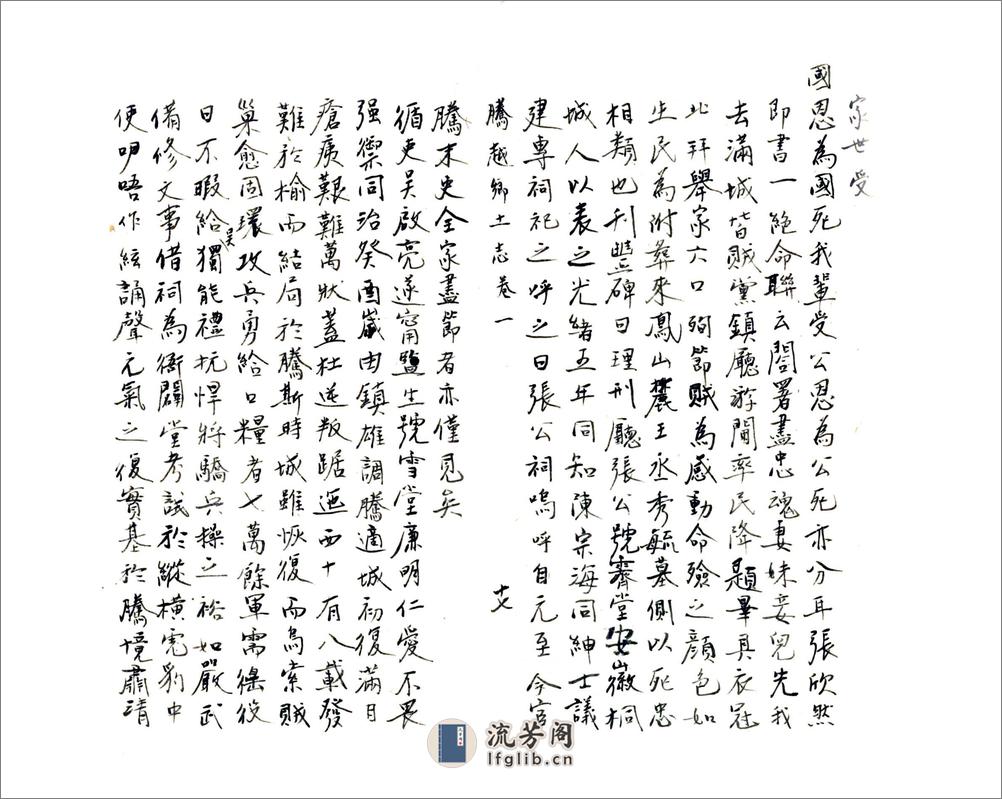 家世受
國恩為國死我輩受公恩為公死亦分耳張欣然
即書一絕命聯云闔署盡忠魂妻妹妾兒先我
去滿城皆賊黨鎮廳游閫率民降題畢具衣冠
北拜舉家六口殉節賊為感動命殮之顏色如
生民為附葬來鳳山麓王丞秀毓墓側以死忠
相類也刊豎碑曰理刑廳張公號霽堂安徽桐
城人以表之光緒五年同知陳宗海同紳士議
建專祠祀之呼之曰張公祠嗚呼自元至今官
騰越鄉土志卷一
十七
騰末史全家盡節者亦僅見矣
循吏吴啟亮遂甯鹽生號雪堂廉明仁愛不畏
强禦同治癸酉歲由鎮雄調騰適城初復滿目
瘡痍艱難萬狀蓋杜逆叛踞迤西十有八載發
難於榆而結局於騰斯時城雖恢復而烏索賊
巢愈固環攻兵勇給口糧者七萬餘軍需徭役
日不暇給吴獨能禮抗悍將驕兵操之裕如嚴武
備修文事借祠為衙闢堂考試於縱橫虎豹中
便咿唔作絃誦聲元氣之復實基於騰境肅靖
流芳阁
lfglib.cn